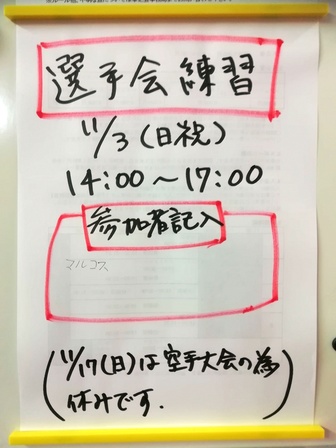 選手会練習
11/3(日祝)
14:00〜17:00
参加者記入
マルコス
(11/17(日)は空手大会の為
休みです.)